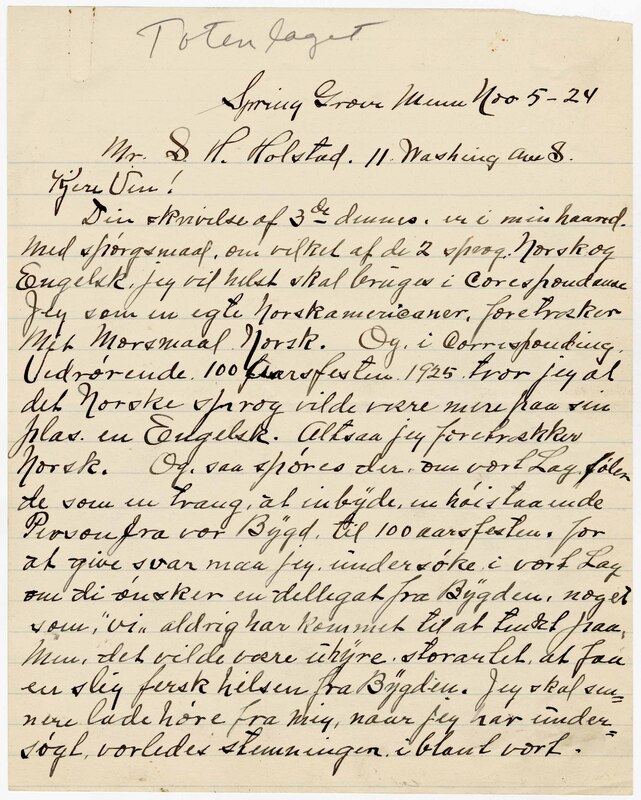 Totenlaget
Spring Grove Minn Nov 5-24
Mr. S. H. Holstad. 11 Washing Ave S.
Kjere Ven!
Din skrivelse af 3de dennes. er i min haand.
med spørgsmaal, om vilket af de 2 sprog. Norsk og
Engelsk. jeg vil helst skal bruges i Corespondanse
Jeg som en egte Norskamericaner, foretræker
Mit Morsmaal Norsk. Og i Corresponding.
Vedrørende 100 Aarsfesten. 1925. tror jeg at
det Norske sprog vilde være mere paa sin
plas. en Engelsk. Altsaa jeg foretrækker
Norsk. Og saa spøres der, om vort Lag, føler
de som en trang, at inbyde, en høistaaende
Person fra vor Bygd, til 100 aarsfesten. for
at give svar maa jeg, undersøke, i vort Lag
om di ønsker en dellegat fra Bygden, noget
som, "vi" aldrig har kommet til at tenkt paa.
Men, det vilde være uhyre, storartet, at faa
en slig fersk hilsen fra Bygden. Jeg skal sen=
nere lade høre fra mig, naar jeg har under=
søgt, vorledes stemningen, i blant vort.